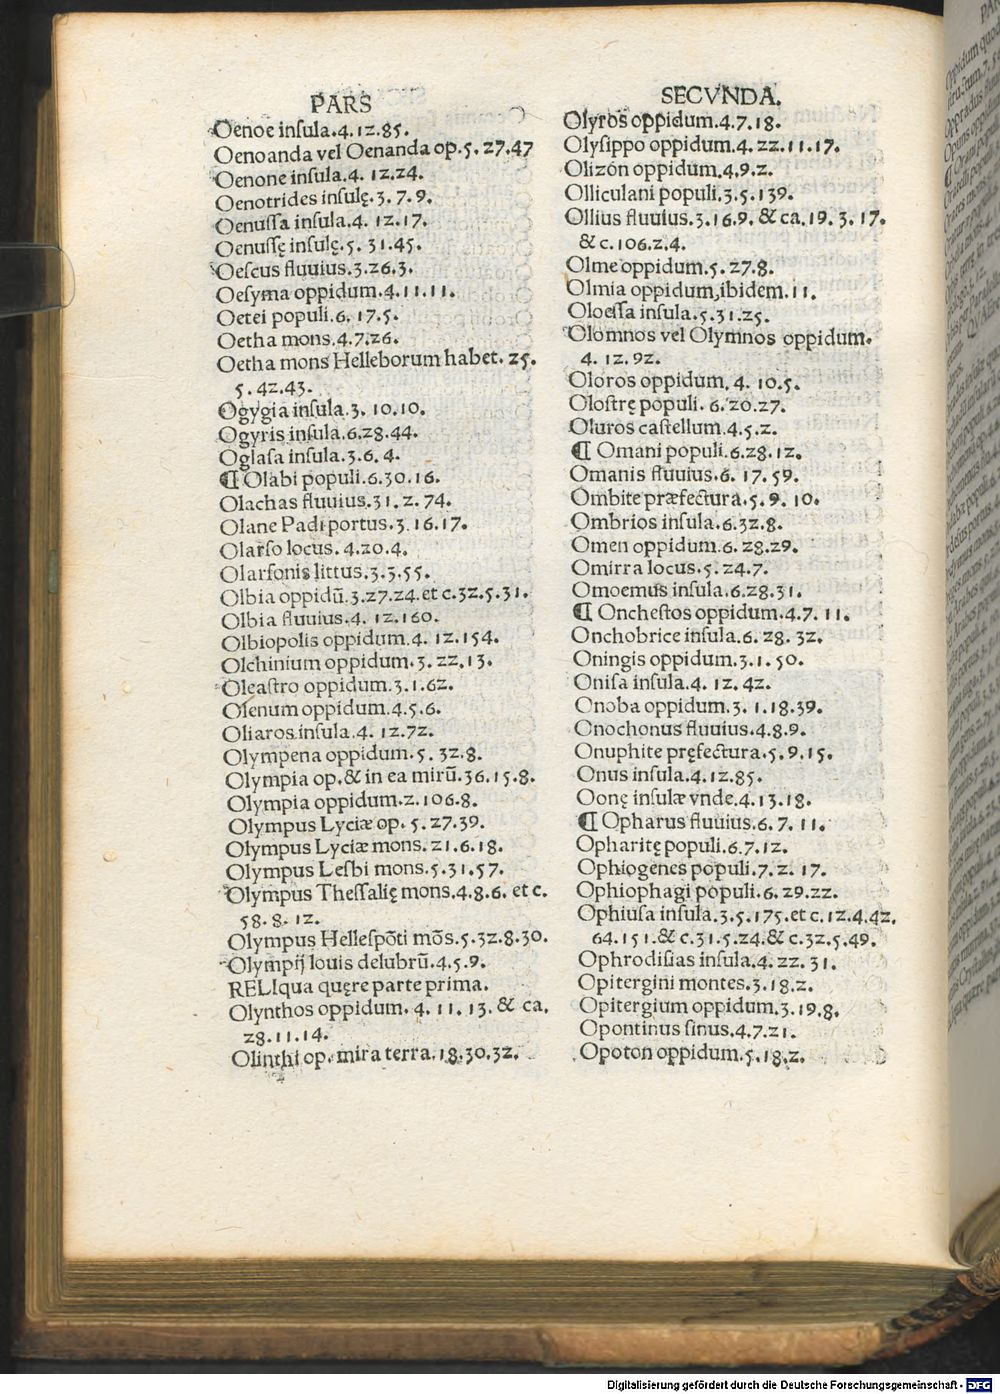 PARS
Oenoe insula.4.12.85.
Oenoanda vel Oenanda op.5.27.47
Oenone insula.4.12.24.
Oenotrides insulę.3.7.9.
Oenussa insula.4.12.17.
Oenussę insulę.5.31.45.
Oescus fluuius.3.26.3.
Oesyma oppidum.4.11.11.
Oetei populi.6.17.5.
Oetha mons.4.7.26.
Oetha mons Helleborum habet.25.
5.42.43.
Ogygia insula.3.10.10.
Ogyris insula.6.28.44.
Oglasa insula.3.6.4.
¶ Olabi populi.6.30.16.
Olachas fluuius.31.2.74.
Olane Padi portus.3.16.17.
Olarso locus.4.20.4.
Olarsonis littus.3.3.55.
Olbia oppidũ.3.27.24.et c.32.5.31.
Olbia fluuius.4.12.160.
Olbiopolis oppidum.4.12.154.
Olchinium oppidum.3.22.13.
Oleastro oppidum.3.1.62.
Olenum oppidum.4.5.6.
Oliaros insula.4.12.72.
Olympena oppidum.5.32.8.
Olympia op.& in ea mirũ.36.15.8.
Olympia oppidum.2.106.8.
Olympus Lyciæ op.5.27.39.
Olympus Lyciæ mons.21.6.18.
Olympus Lesbi mons.5.31.57.
Olympus Thessalię mons.4.8.6.et c.
58.8.12.
Olympus Hellespõti mõs.5.32.8.30.
Olympij Iouis delubrũ.4.5.9.
RELIqua quęre parte prima.
Olynthos oppidum.4.11.13.& ca.
28.11.14.
Olinthi op.mira terra.18.30.32.
SECVNDA.
Olyros oppidum.4.7.18.
Olysippo oppidum.4.22.11.17.
Olizón oppidum.4.9.2.
Olliculani populi.3.5.139.
Ollius fluuius.3.16.9.& ca.19.3.17.
& c.106.2.4.
Olme oppidum.5.27.8.
Olmia oppidum,ibidem.11.
Oloessa insula.5.31.25.
Olomnos vel Olymnos oppidum.
4.12.92.
Oloros oppidum.4.10.5.
Olostrę populi.6.20.27.
Oluros castellum.4.5.2.
¶ Omani populi.6.28.12.
Omanis fluuius.6.17.59.
Ombite præfectura.5.9.10.
Ombrios insula.6.32.8.
Omen oppidum.6.28.29.
Omirra locus.5.24.7.
Omoemus insula.6.28.31.
¶ Onchestos oppidum.4.7.11.
Onchobrice insula.6.28.32.
Oningis oppidum.3.1.50.
Onisa insula.4.12.42.
Onoba oppidum.3.1.18.39.
Onochonus fluuius.4.8.9.
Onuphite pręfectura.5.9.15.
Onus insula.4.12.85.
Oonę insulæ vnde.4.13.18.
¶ Opharus fluuius.6.7.11.
Opharitę populi.6.7.12.
Ophiogenes populi.7.2.17.
Ophiophagi populi.6.29.22.
Ophiusa insula.3.5.175.et c.12.4.42.
64.151.& c.31.5.24.& c.32.5.49.
Ophrodisias insula.4.22.31.
Opitergini montes.3.18.2.
Opitergium oppidum.3.19.8.
Opontinus sinus.4.7.21.
Opoton oppidum.5.18.2.
Digitalisierung gefördert durch die Deutsche Forschungsgemeinschaft - DFG